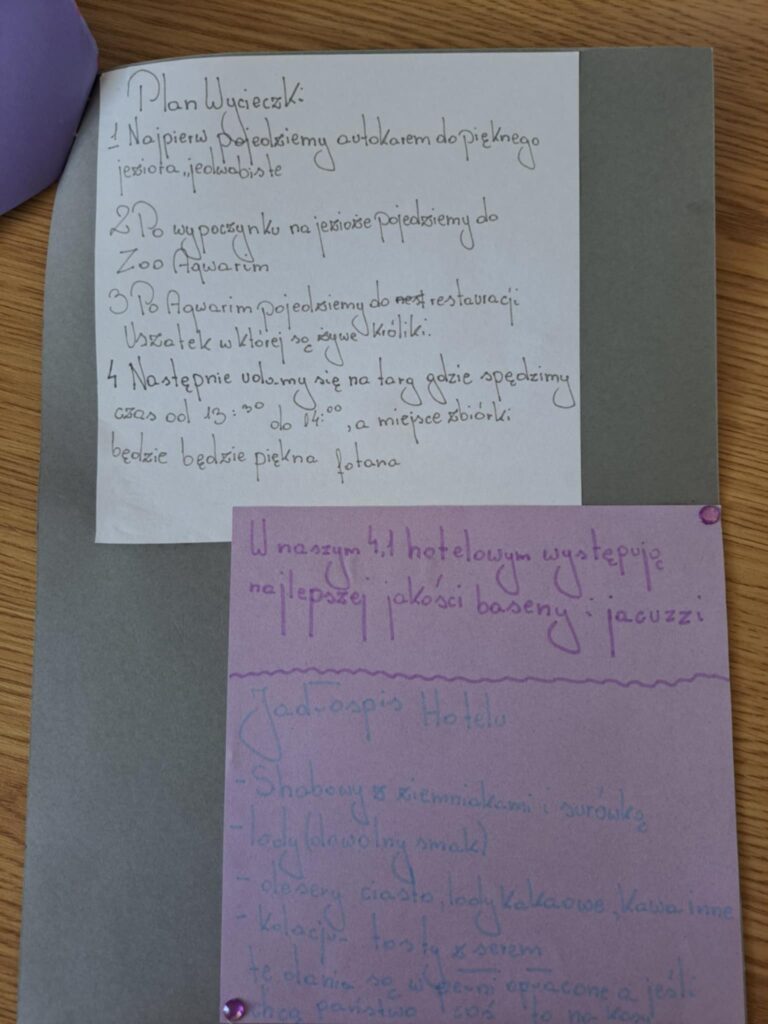 Plan Wycieczki
1 Najpierw pojedziemy autokarem do pięknego
jeziora „jedwabiste
2 Po wypoczynku na jezioże pojedziemy do
Zoo Aqwarim
3 Po Aqwarim pojedziemy do restauracji
Uszatek w której są żywe króliki.
4 Następnie udamy się na targ gdzie spędzimy
czas od 13:30 do 14:00, a miejsce zbiórki
będzie będzie piękna fotana
W naszym 4,1 hotelowym występują
najlepszej jakości baseny i jacuzzi
Jadłospis Hotelu
- Shabowy z ziemniakami i surówką
- lody (dowolny smak)
- desery ciasto, lody kakaowe, kawa inne
- kolacja - tosty z serem
te dania są w pełni opłacone a jeśli
chcą państwo coś to na